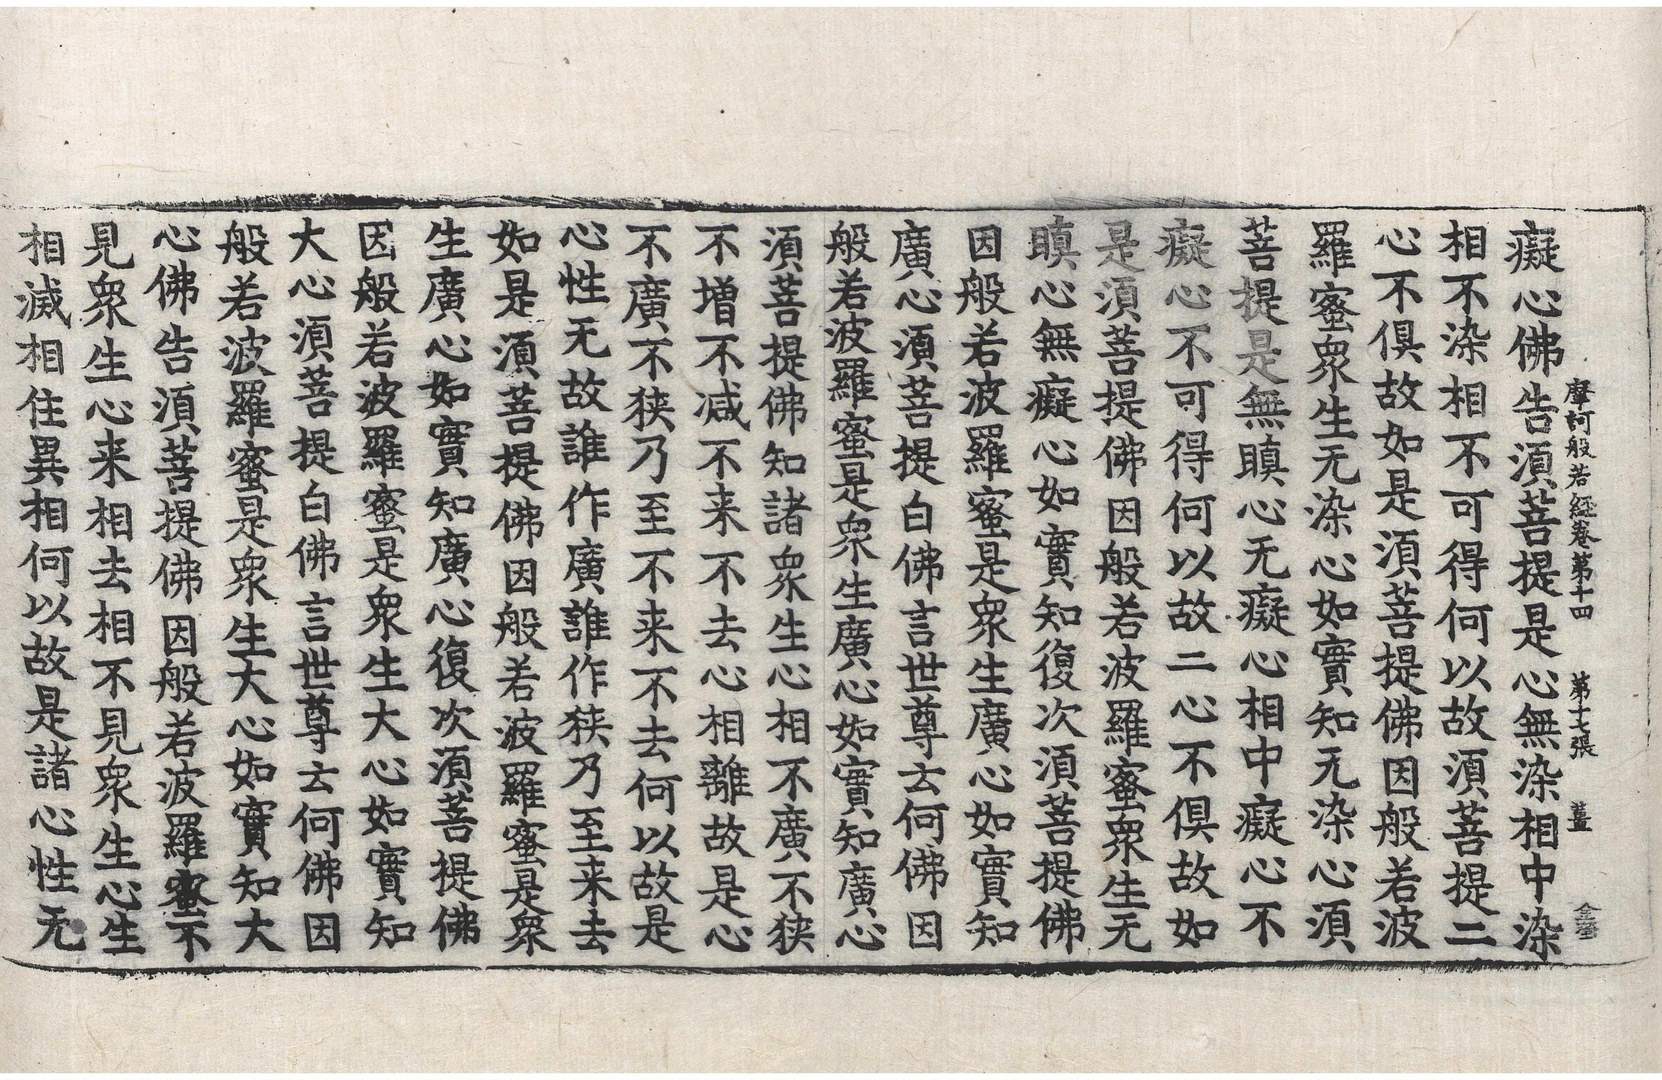 摩訶般若經卷第十四　第十七張　薑
癡心佛告湏菩提是心無染相中染
相不染相不可得何以故湏菩提二
心不俱故如是湏菩提佛因般若波
羅蜜衆生无染心如實知无染心湏
菩提是無瞋心无癡心相中癡心不
癡心不可得何以故二心不俱故如
是湏菩提佛因般若波羅蜜衆生无
瞋心無癡心如實知復次湏菩提佛
因般若波羅蜜是衆生廣心如實知
廣心湏菩提白佛言世尊云何佛因
般若波羅蜜是衆生廣心如實知廣心
湏菩提佛知諸衆生心相不廣不狹
不增不減不来不去心相離故是心
不廣不狹乃至不来不去何以故是
心性无故誰作廣誰作狹乃至来去
如是湏菩提佛因般若波羅蜜是衆
生廣心如實知廣心復次湏菩提佛
因般若波羅蜜是衆生大心如實知
大心湏菩提白佛言世尊云何佛因
般若波羅蜜是衆生大心如實知大
心佛告湏菩提佛因般若波羅蜜不
見衆生心来相去相不見衆生心生
相滅相住異相何以故是諸心性无